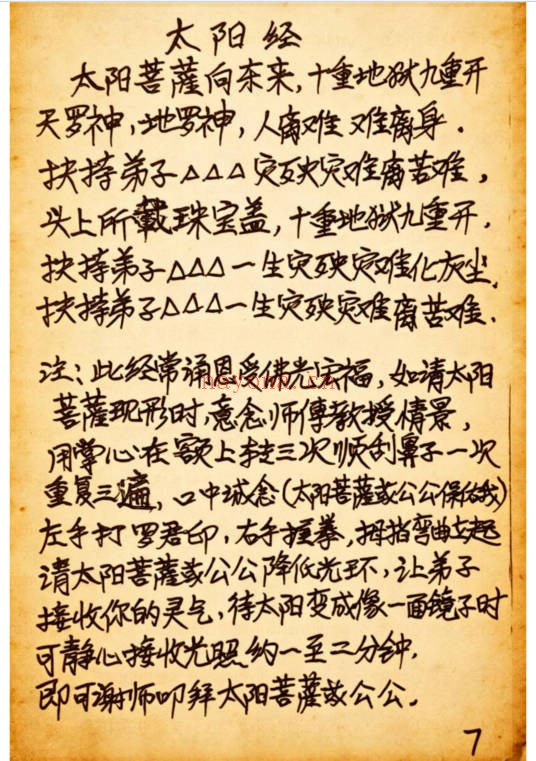 太阳经
太阳菩薩向东来,十重地狱九重开
天罗神,地罗神,人离难难离身.
扶持弟子△△△灾殃灾难离苦难,
头上所戴珠宝盖,十重地狱九重开.
扶持弟子△△△一生灾殃灾难化灰尘.
扶持弟子△△△一生灾殃灾难离苦难.
注:此经常诵恩受佛光宝福,如请太阳
菩薩现形时,意念师傅教授情景,
用掌心在额上 三次顺刮鼻子一次
重复三遍,口中诚念(太阳菩薩或公公保佑我)
左手打罗君印,右手握拳,拇指弯曲立起
请太阳菩薩或公公降低光环,让弟子
接收你的灵气,待太阳变成像一面镜子时
可静心接收光照约一至二分钟.
即可谢师叩拜太阳菩薩或公公.
7